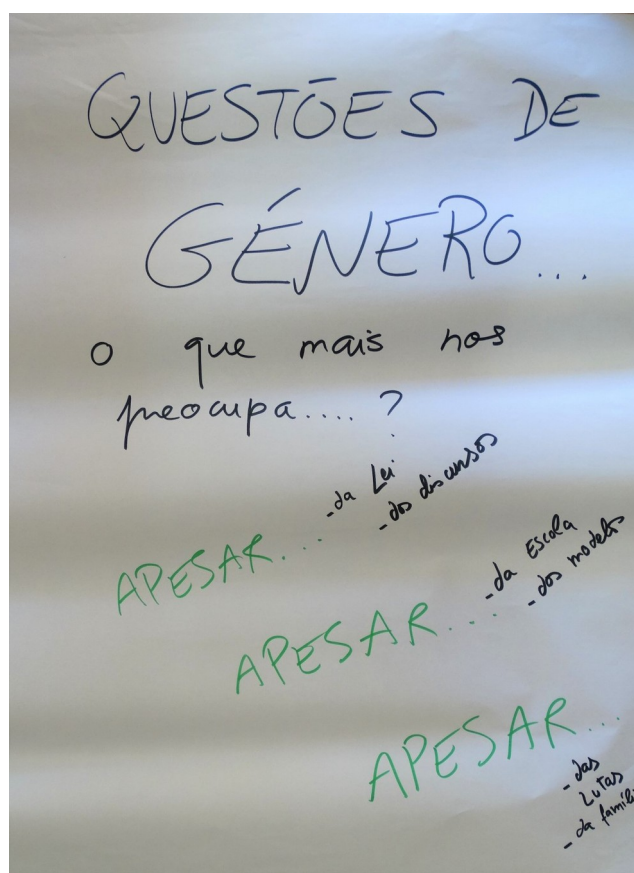 QUESTÕES DE
GÉNERO...
O que mais nos
preocupa....?
APESAR...
- da Lei
- dos discursos
APESAR....
- da Escola
- dos modelos
APESAR...
- das
Lutas
- da famíli